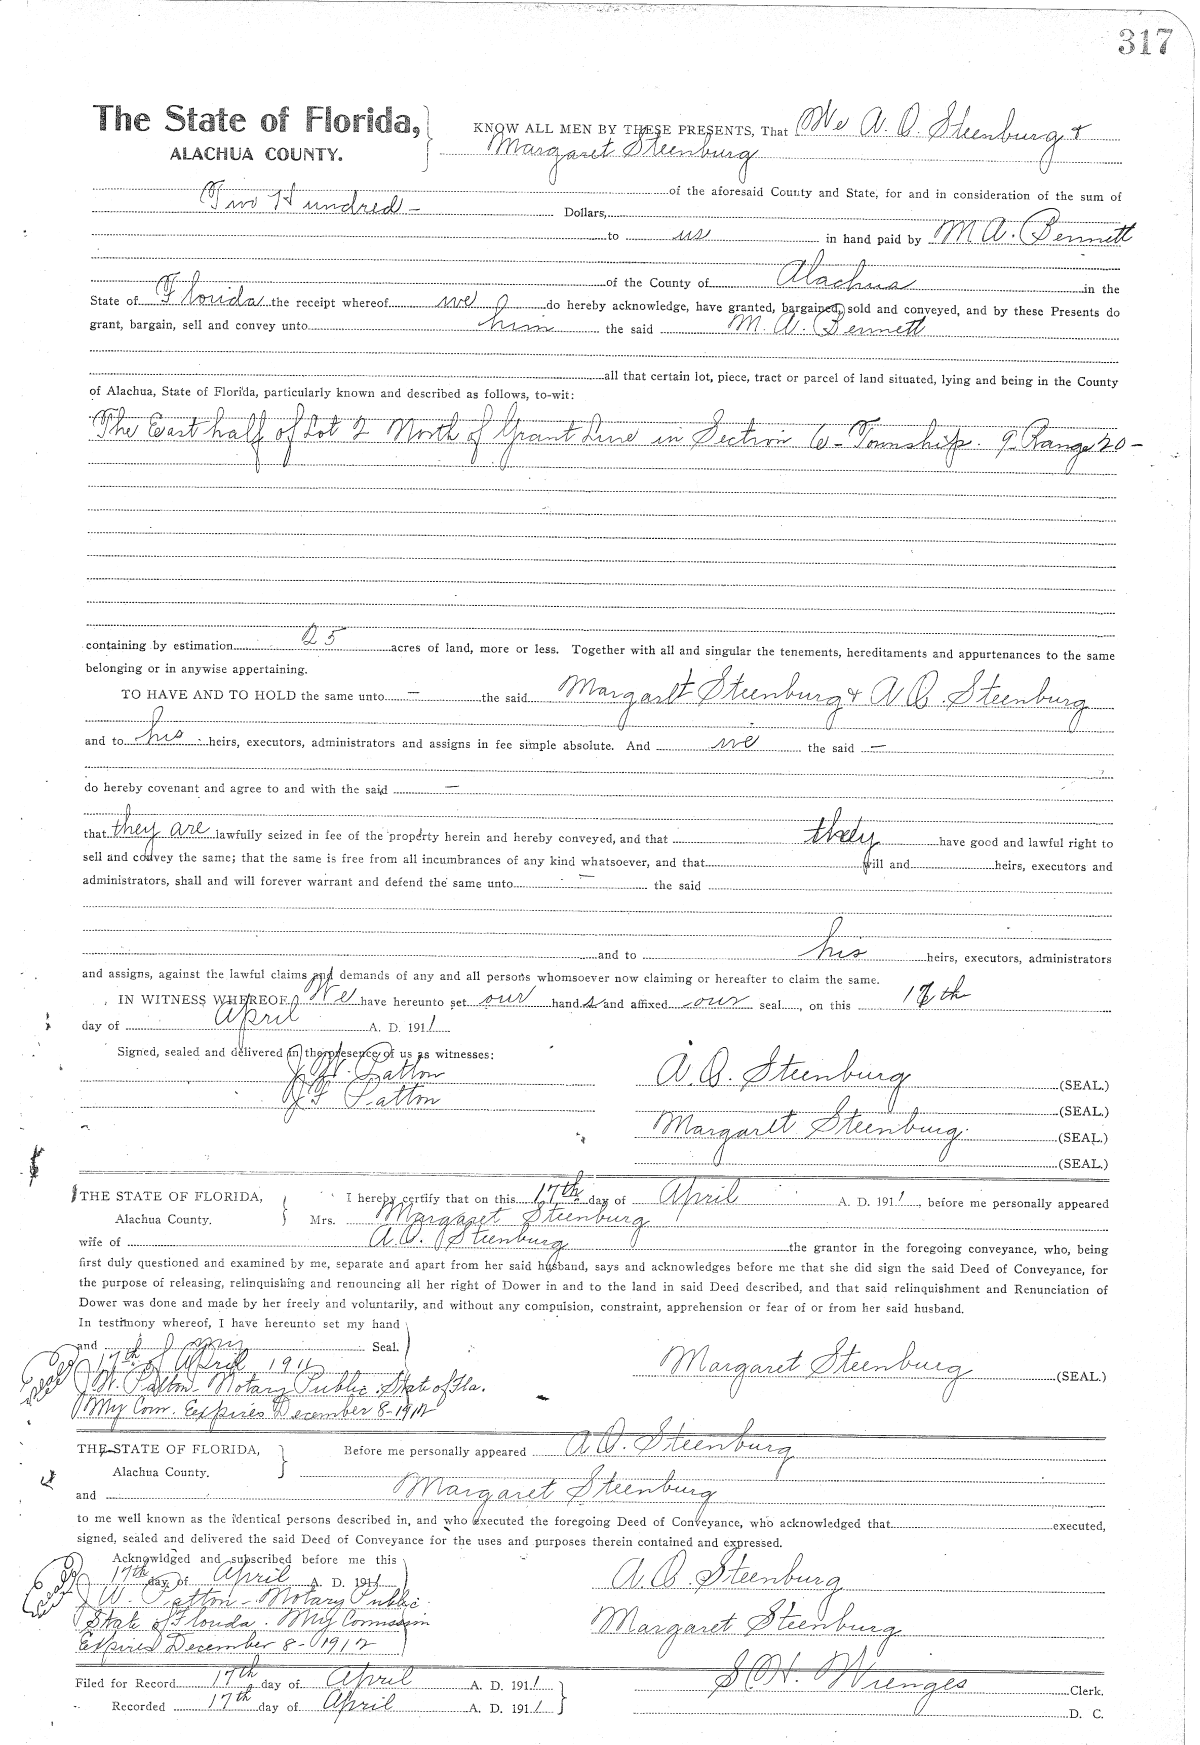 317
The State of Florida,
ALACHUA COUNTY.
KNOW ALL MEN BY THESE PRESENTS, That We A. B. Steenburg &
Margaret Steenburg
of the aforesaid County and State, for and in consideration of the sum of
Two Hundred — Dollars,
to us in hand paid by M A. Bennett
of the County of Alachua in the
State of Florida the receipt whereof we do hereby acknowledge, have granted, bargained, sold and conveyed, and by these Presents do
grant, bargain, sell and convey unto him the said M. A. Bennett
all that certain lot, piece, tract or parcel of land situated, lying and being in the County
of Alachua, State of Florida, particularly known and described as follows, to-wit:
The East half of Lot 2 North of Grant Line in Section 6 - Township. 9 - Range 20 -
containing by estimation 25 acres of land, more or less. Together with all and singular the tenements, hereditaments and appurtenances to the same
belonging or in anywise appertaining.
TO HAVE AND TO HOLD the same unto — the said Margaret Steenburg & A B. Steenburg
and to his heirs, executors, administrators and assigns in fee simple absolute. And we the said —
do hereby covenant and agree to and with the said —
that they are lawfully seized in fee of the property herein and hereby conveyed, and that they have good and lawful right to
sell and convey the same; that the same is free from all incumbrances of any kind whatsoever, and that will and heirs, executors and
administrators, shall and will forever warrant and defend the same unto — the said
and to his heirs, executors, administrators
and assigns, against the lawful claims and demands of any and all persons whomsoever now claiming or hereafter to claim the same.
IN WITNESS WHEREOF, We have hereunto set our hands and affixed our seal, on this th
day of April A. D. 1911
Signed, sealed and delivered in the presence of us as witnesses:
J. W. Patton
J F Patton
A. B. Steenburg (SEAL.)
(SEAL.)
Margaret Steenburg. (SEAL.)
(SEAL.)
THE STATE OF FLORIDA, I hereby certify that on this 17th day of April A. D. 1911, before me personally appeared
Alachua County. Mrs. Margaret Steenburg
wife of A. B. Steenburg the grantor in the foregoing conveyance, who, being
first duly questioned and examined by me, separate and apart from her said husband, says and acknowledges before me that she did sign the said Deed of Conveyance, for
the purpose of releasing, relinquishing and renouncing all her right of Dower in and to the land in said Deed described, and that said relinquishment and Renunciation of
Dower was done and made by her freely and voluntarily, and without any compulsion, constraint, apprehension or fear of or from her said husband.
In testimony whereof, I have hereunto set my hand
and my Seal.
17th of April 1911
Seal J W. Patton Notary Public State of Fla.
My Com. Expires December 8-1912
Margaret Steenburg (SEAL.)
THE STATE OF FLORIDA, Before me personally appeared A B. Steenburg
Alachua County.
and Margaret Steenburg
to me well known as the identical persons described in, and who executed the foregoing Deed of Conveyance, who acknowledged that executed,
signed, sealed and delivered the said Deed of Conveyance for the uses and purposes therein contained and expressed.
Acknowldged and subscribed before me this
17th day of April A. D. 1911
Seal J W. Patton - Notary Public
State of Florida. My Comission
Expires December 8-1912
A. B. Steenburg
Margaret Steenburg
Filed for Record 17th day of April A. D. 1911 S. H. Wienges Clerk.
Recorded 17th day of April A. D. 1911
D. C.